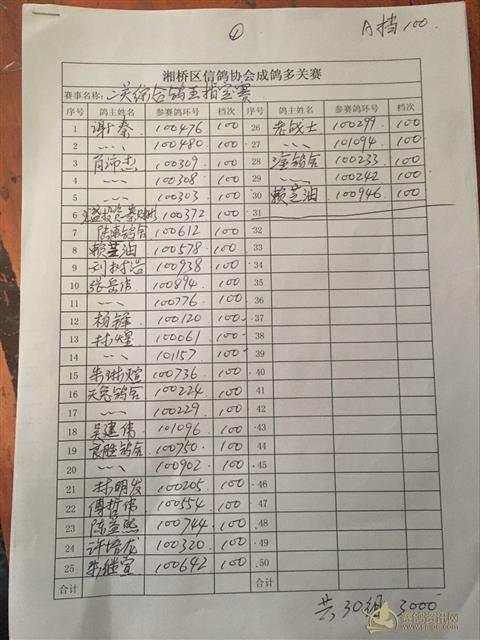 ① A档100.
湘桥区信鸽协会成鸽多关赛
赛事名称: 二关综合鸽王指定赛
序号 鸽主姓名 参赛鸽环号 档次 序号 鸽主姓名 参赛鸽环号 档次
1 谢秦 100476 100 26 老战士 100299 100
2 〃 100480 100 27 〃 101094 100
3 肖沛杰 100309 100 28 鸽舍 100233 100
4 〃 100308 100 29 〃 100242 100
5 〃 100303 100 30 赖芝油 100946 100
6 100372 100 31
7 鸽舍 100612 100 32
8 赖芝油 100578 100 33
9 100938 100 34
10 张岳伟 100894 100 35
11 〃 100776 100 36
12 杨锋 100120 100 37
13 林煌 100061 100 38
14 〃 101157 100 39
15 朱琳煊 100736 100 40
16 天兔鸽舍 100224 100 41
17 〃 100229 100 42
18 吴建伟 101096 100 43
19 良胜鸽舍 100750 100 44
20 〃 100902 100 45
21 林明发 100205 100 46
22 傅哲伟 100554 100 47
23 陈益熙 100744 100 48
24 许培龙 100320 100 49
25 朱继宣 100642 100 50
合计 合计
共30组 3000
赛鸽资讯网